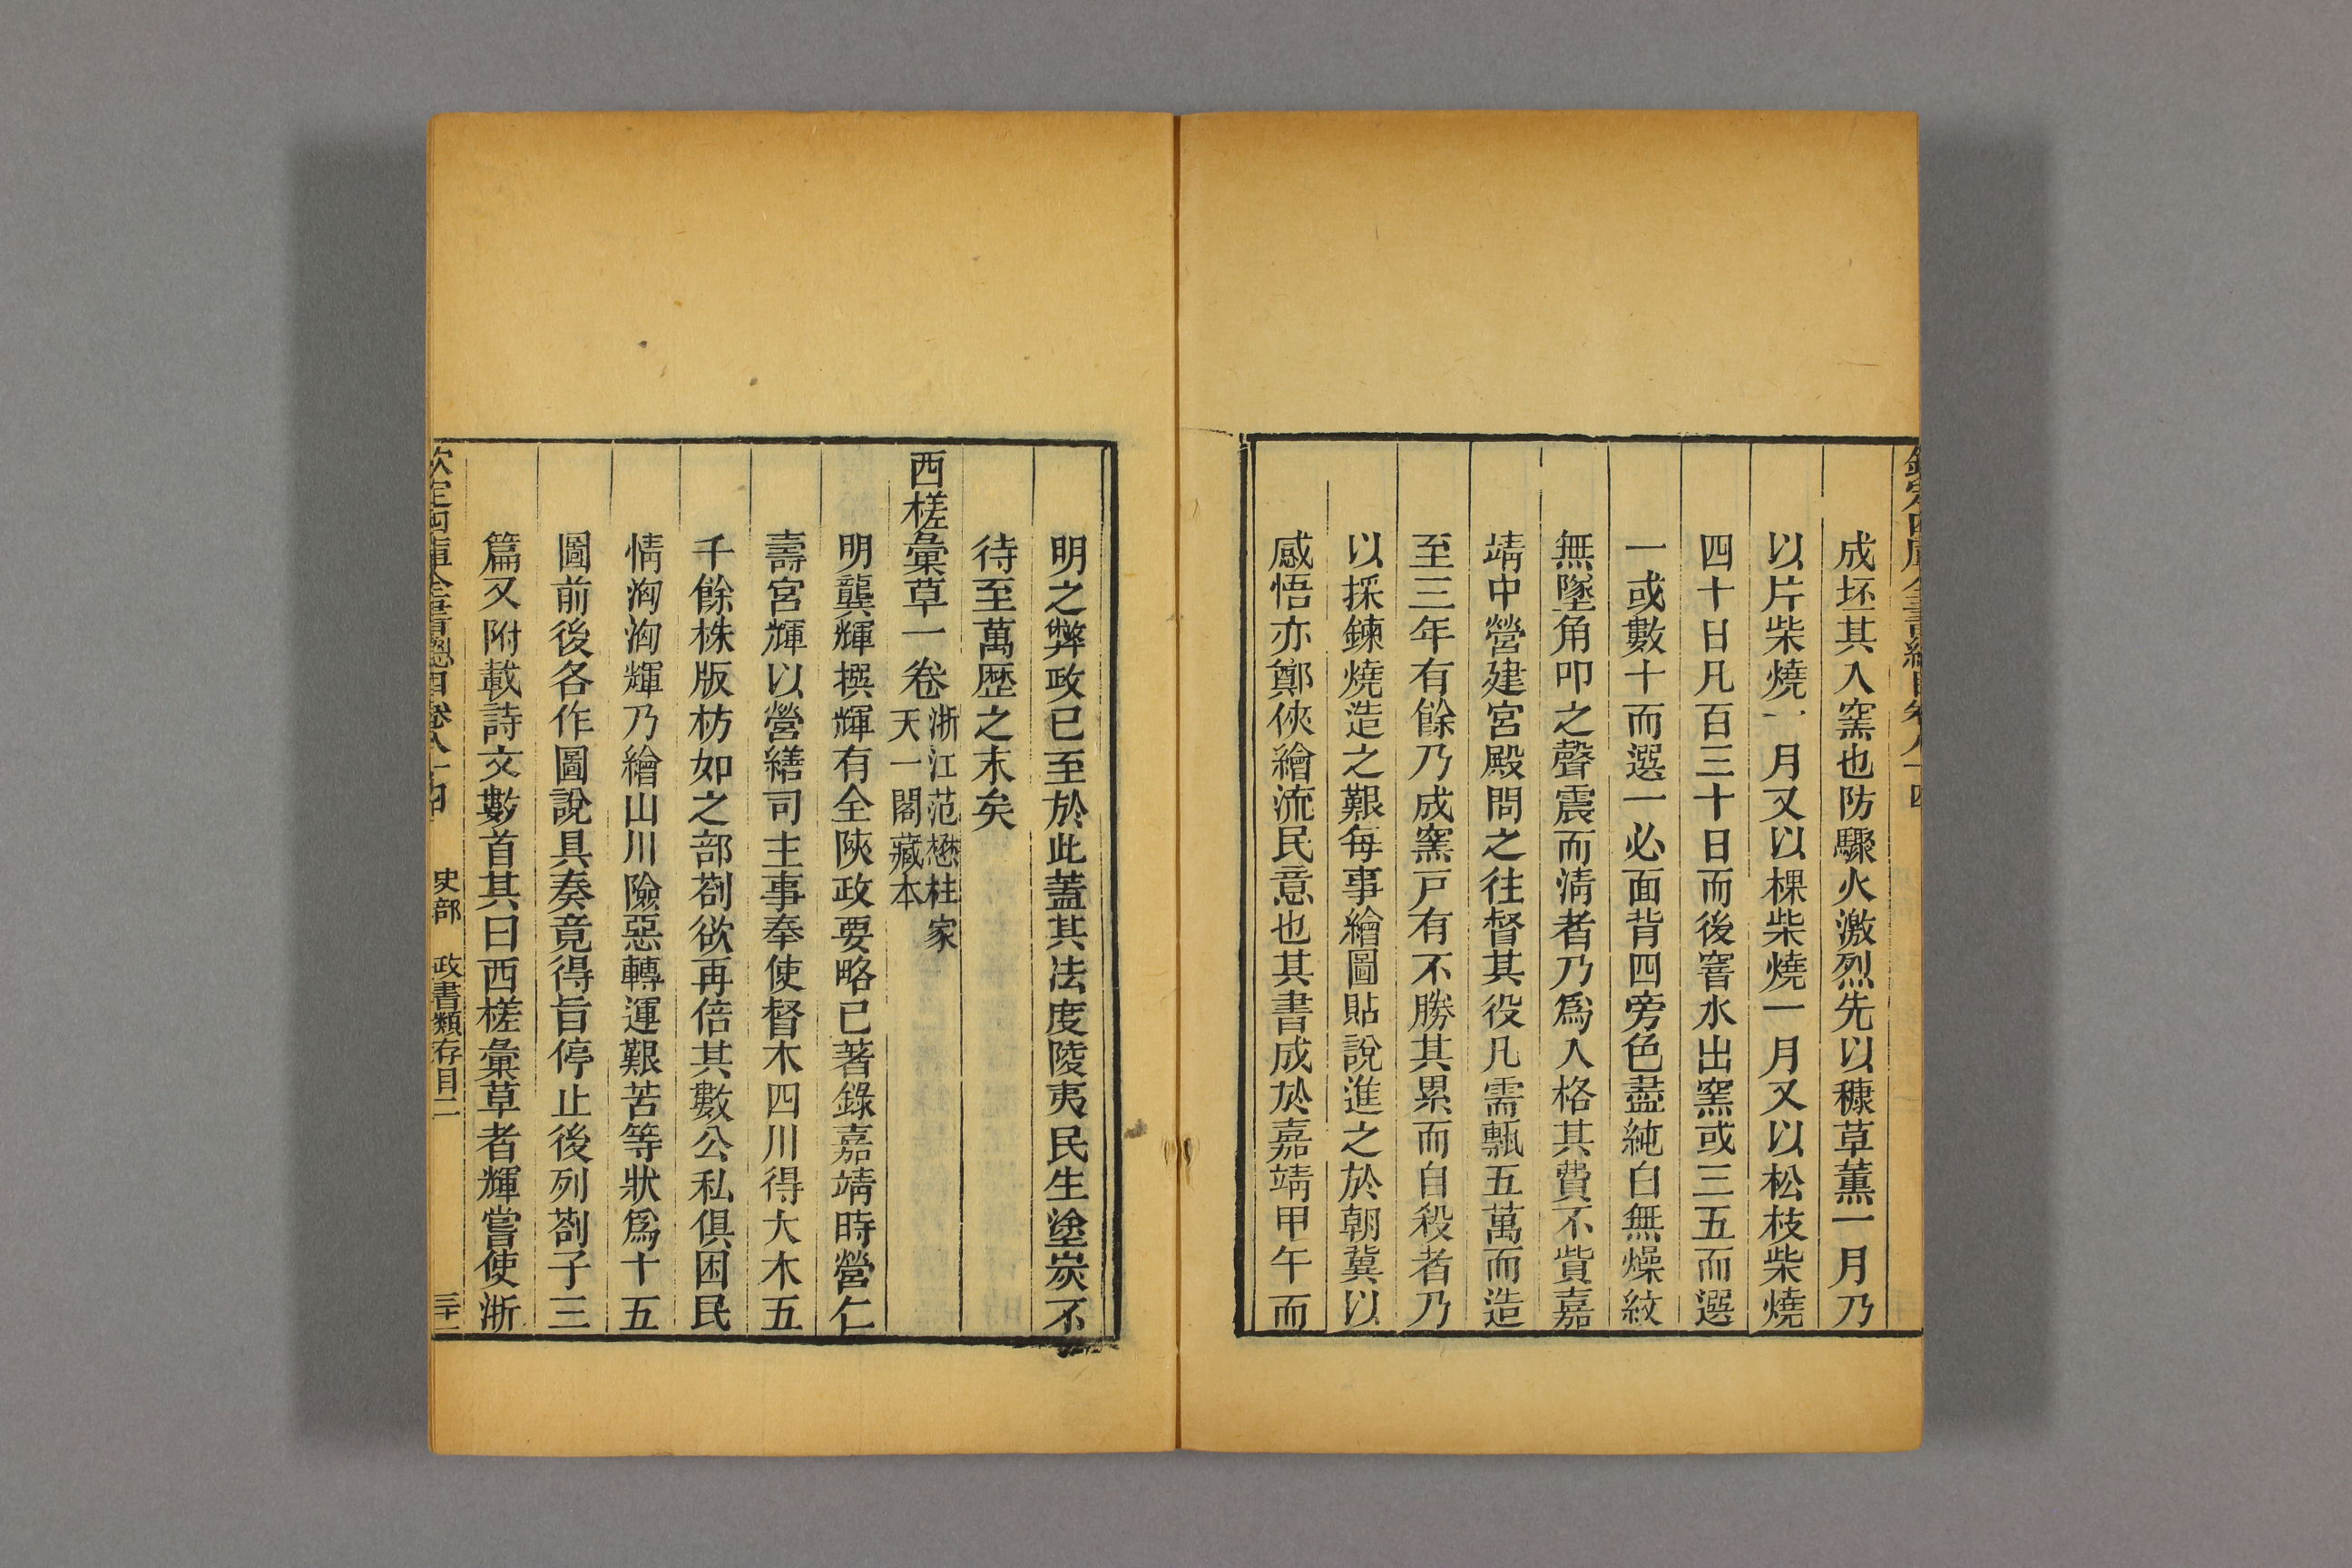 成坯其入窯也防驟火激烈先以穅草薰一月乃
以片柴燒一月又以棵柴燒一月又以松枝柴燒
四十日凡百三十日而後窨水出窯或三五而選
一或數十而選一必面背四旁色盡純白無燥紋
無墜角叩之聲震而淸者乃爲人格其費不貲嘉
靖中營建宮殿問之往督其役凡需甎五萬而造
至三年有餘乃成窯戸有不勝其累而自殺者乃
以採鍊燒造之艱每事繪圖貼說進之於朝冀以
感悟亦鄭俠繪流民意也其書成於嘉靖甲午而
明之弊政已至於此蓋其法度陵夷民生塗炭不
待至萬歴之末矣
西槎彙草一卷
浙江范懋柱家
天一閣藏本
明龔輝撰輝有全陜政要略已著錄嘉靖時營仁
壽宮輝以營繕司主事奉使督木四川得大木五
千餘株版枋如之部劄欲再倍其數公私俱困民
情洶洶輝乃繪山川險惡轉運艱苦等狀爲十五
圖前後各作圖說具奏竟得旨停止後列劄子三
篇又附載詩文數首其曰西槎彙草者輝嘗使浙
欽定四庫全書總目卷八十四
史部 政書類存目二
三十一